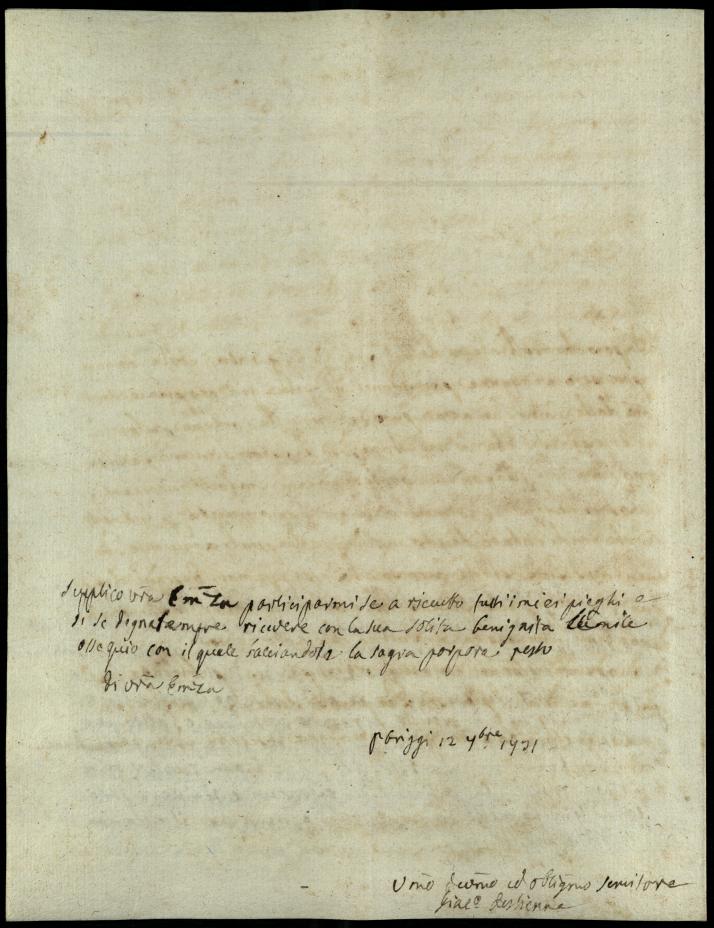 supplico vrã Em̃za participarmi se a riceuto tutti i miei pieghi e
di se degna sempre ricevere con la sua solita benignità l'umile
ossequio con il quale bacciandola la sagra porpora resto
di vrã Em̃za
Pariggi 12 9bre 1721
Vmõ deuõmo ed obligmo seruitore